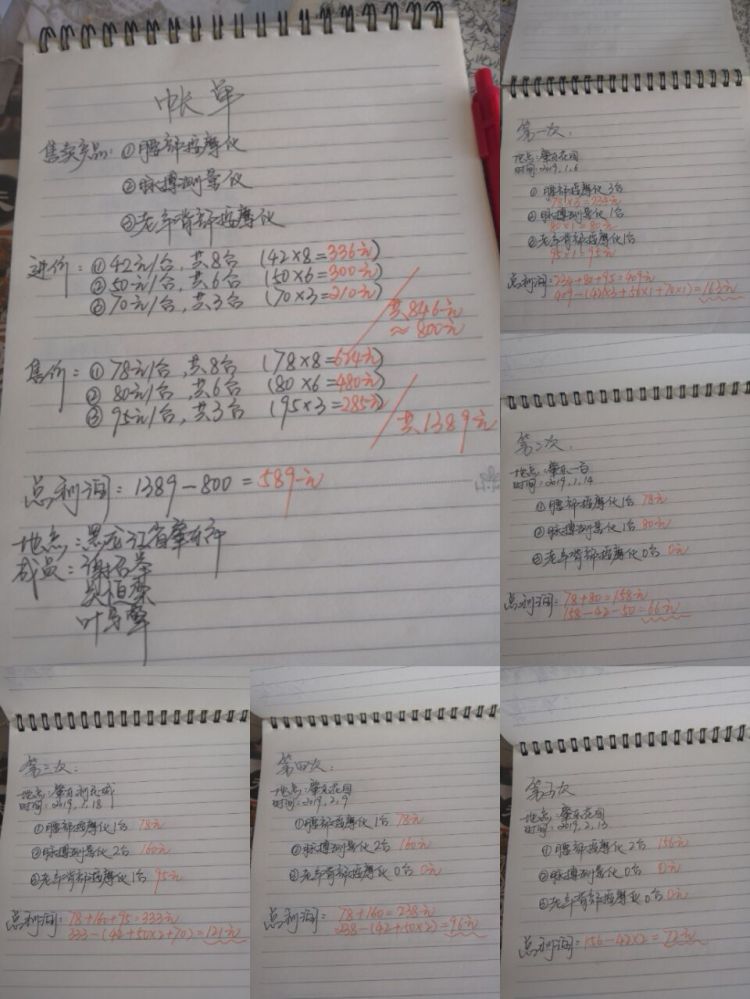 帐单
售卖产品:①腰部按摩仪
②脉搏测量仪
③老年背部按摩仪
进价:①42元/台,共8台 (42×8=336元)
②50元/台,共6台 (50×6=300元)
③70元/台,共3台 (70×3=210元)
共846元
≈800元
售价:①78元/台,共8台 (78×8=624元)
②80元/台,共6台 (80×6=480元)
③95元/台,共3台 (95×3=285元)
共1389元
总利润:1389-800=589元
地点:黑龙江省肇东市
成员:
第一次:
地点:肇东花园
时间:2019.1.6
①腰部按摩仪3台
78×3=234元
②脉搏测量仪1台
80×1=80元
③老年背部按摩仪1台
95×1=95元
总利润:234+80+95=409元
409-(42×3+50×1+70×1)=163元
第二次:
地点:肇东一百
时间:2019.1.14
①腰部按摩仪1台 78元
②脉搏测量仪1台 80元
③老年背部按摩仪0台 0元
总利润:78+80=158元
158-42-50=66元
第三次:
地点:肇东利民城
时间:2019.1.18
①腰部按摩仪1台 78元
②脉搏测量仪2台 160元
③老年背部按摩仪1台 95元
总利润:78+160+95=333元
333-(42+50×2+70)=121元
第四次:
地点:肇东花园
时间:2019.2.9
①腰部按摩仪1台 78元
②脉搏测量仪2台 160元
③老年背部按摩仪0台 0元
总利润:78+160=238元
238-(42+50×2)=96元
第五次
地点:肇东花园
时间:2019.2.13
①腰部按摩仪2台 156元
②脉搏测量仪0台 0元
③老年背部按摩仪0台 0元
总利润:156-42×2=72元